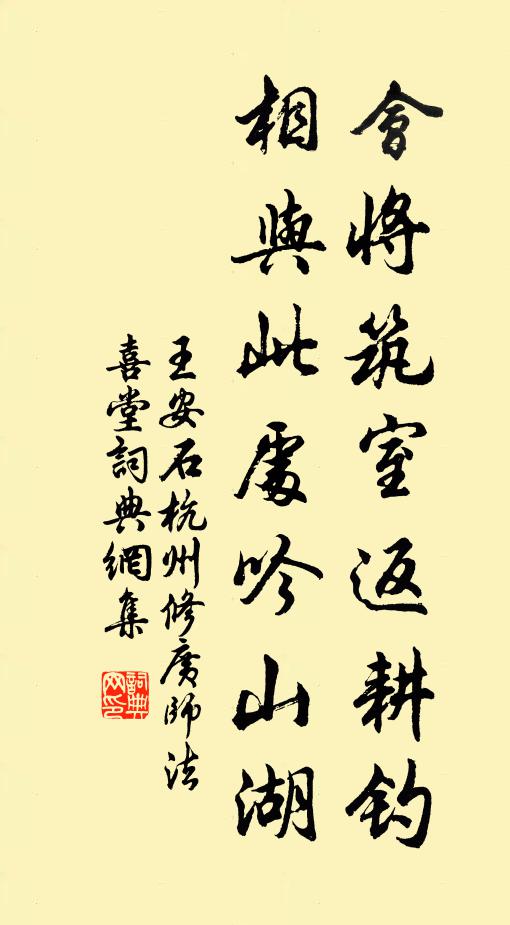 會將筑室返耕钓
相與此處吟山湖
王安石杭州修廣師法
喜堂詞典網集
詞典网印